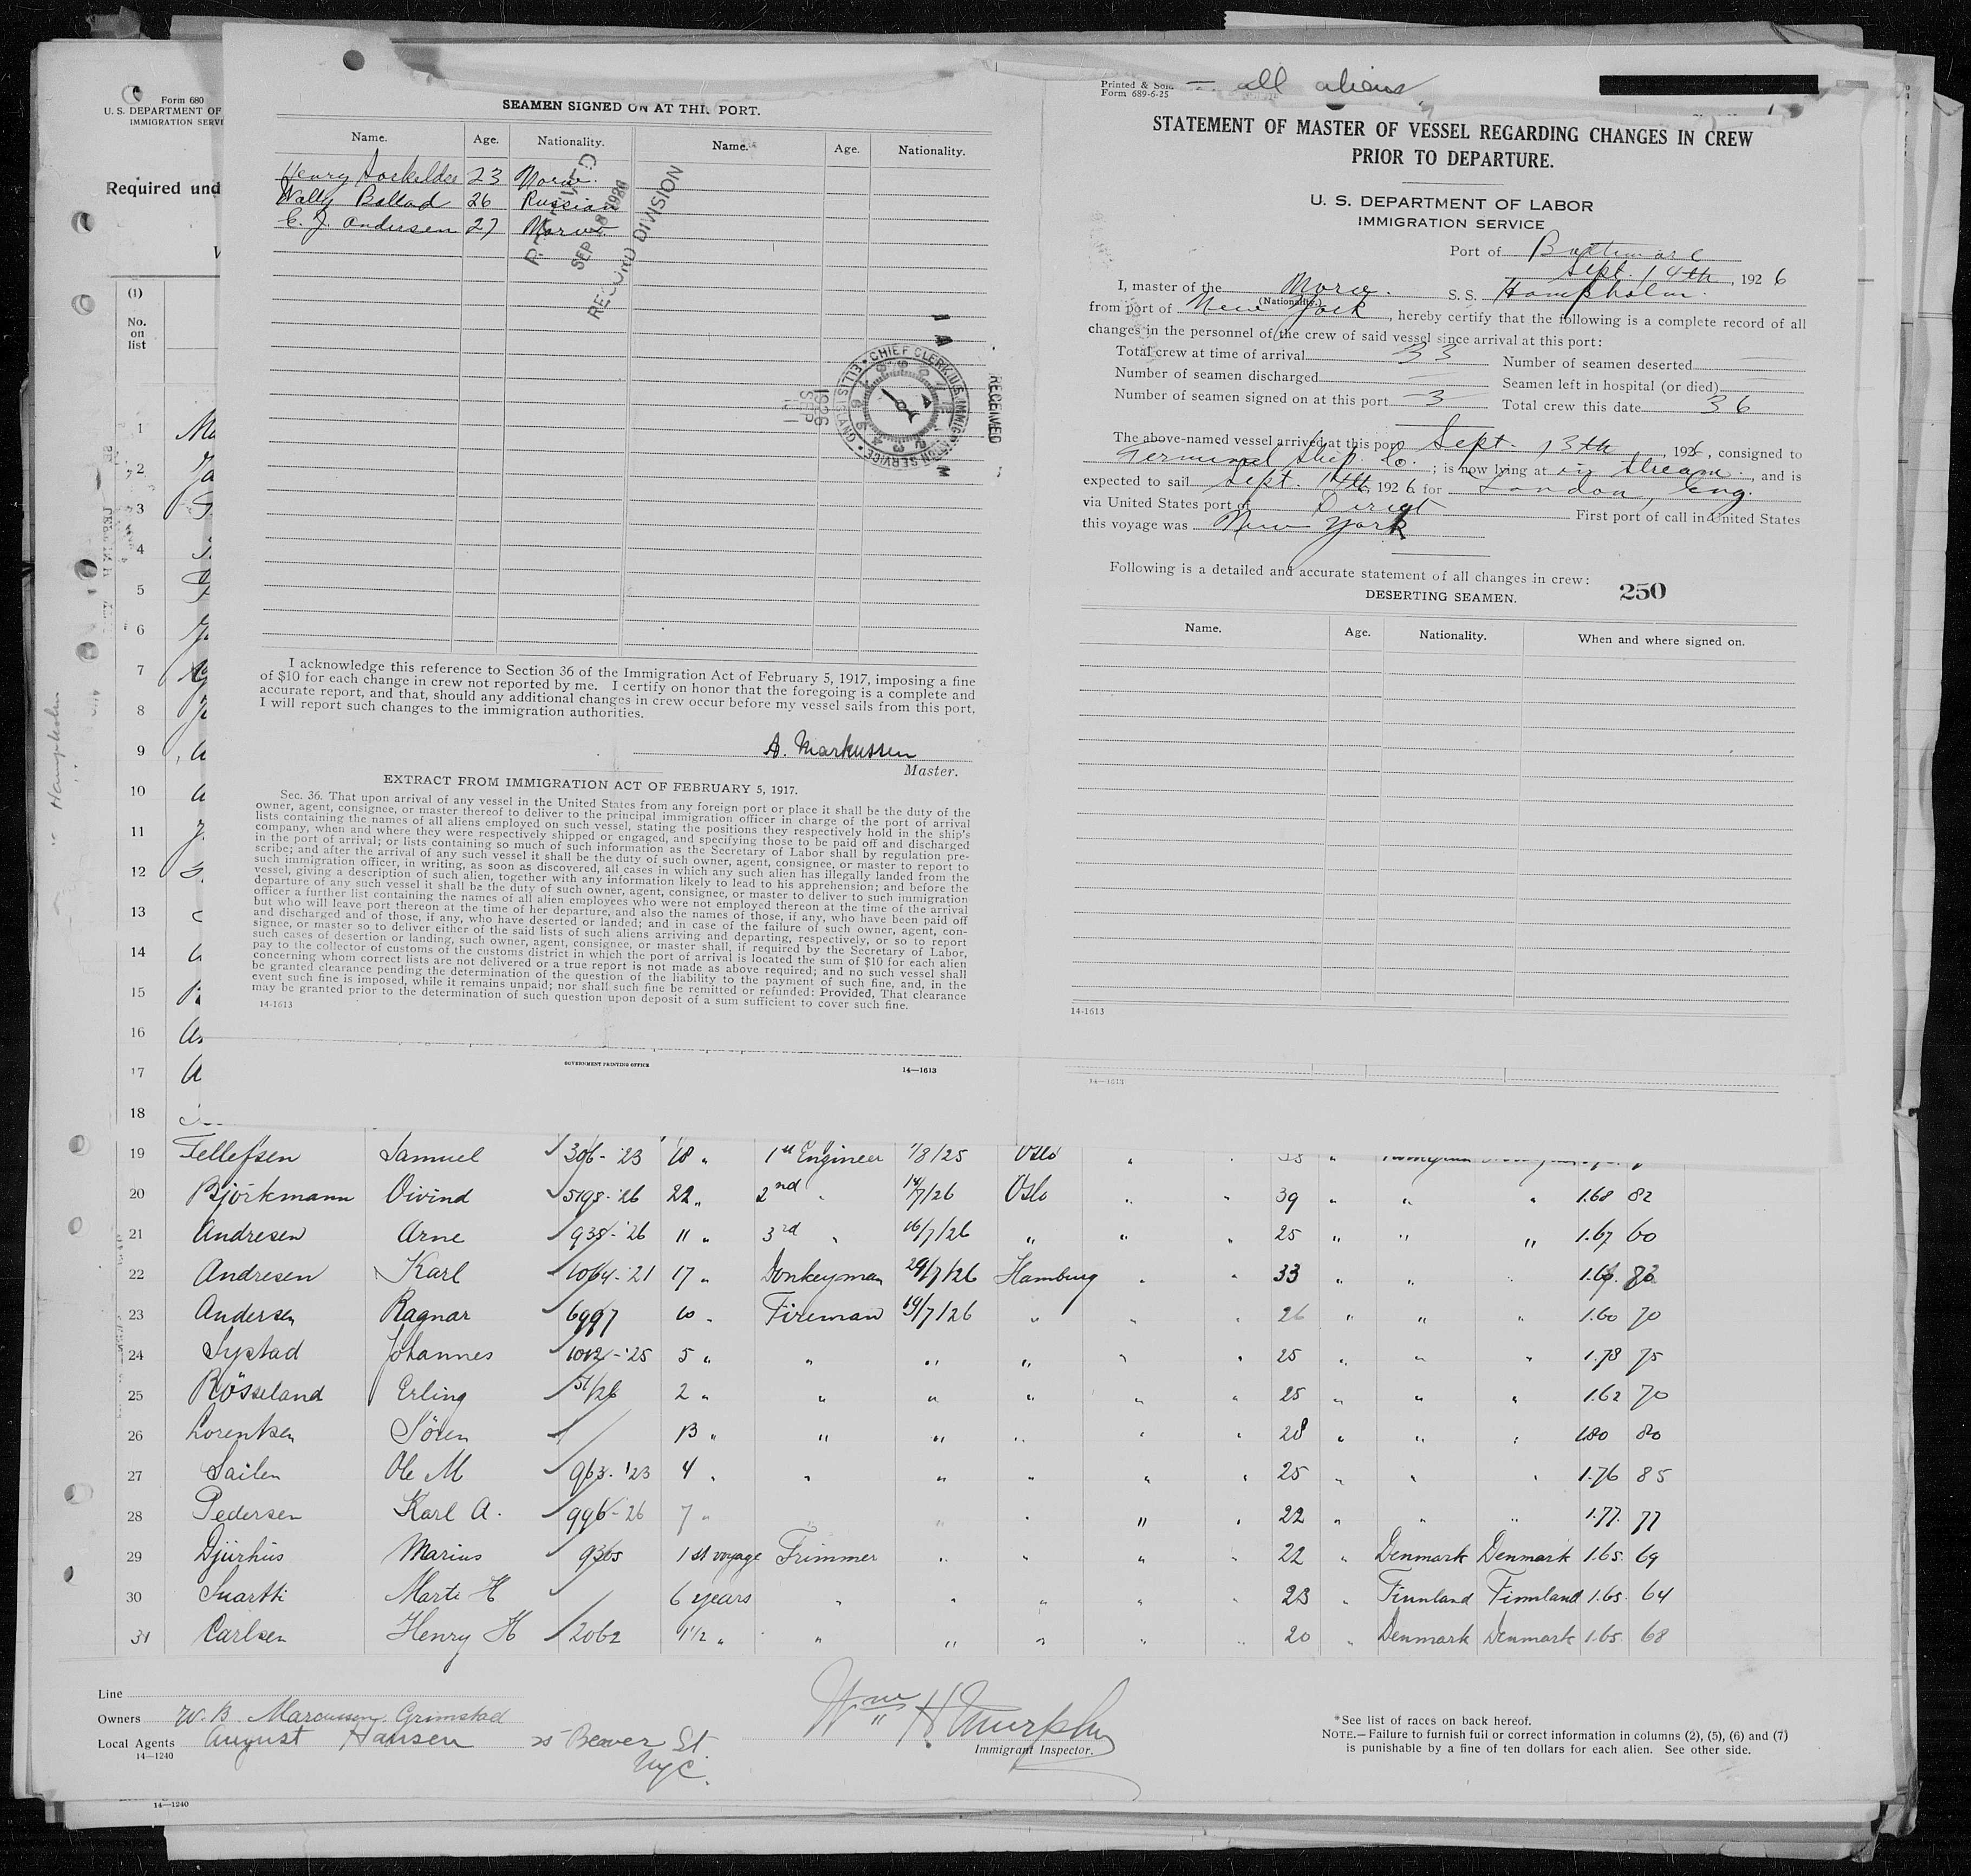 Form 680
U. S. DEPARTMENT OF
IMMIGRATION SERVI
Required und
(1)
No.
on
list
SEAMEN SIGNED ON AT THIS PORT.
Name. Age. Nationality. Name. Age. Nationality.
Henry 23 Norw.
Wally Ballod 26 Russian
C. J. Andersen 27 Norw.
RECEIVED
SEP 18 1926
RECORD DIVISION
CHIEF CLERK U.S. IMMIGRATION SERVICE • ELLIS ISLAND
RECEIVED
1926
SEP
I acknowledge this reference to Section 36 of the Immigration Act of February 5, 1917, imposing a fine
of $10 for each change in crew not reported by me. I certify on honor that the foregoing is a complete and
accurate report, and that, should any additional changes in crew occur before my vessel sails from this port,
I will report such changes to the immigration authorities.
A. Markussen
Master.
EXTRACT FROM IMMIGRATION ACT OF FEBRUARY 5, 1917.
Sec. 36. That upon arrival of any vessel in the United States from any foreign port or place it shall be the duty of the
owner, agent, consignee, or master thereof to deliver to the principal immigration officer in charge of the port of arrival
lists containing the names of all aliens employed on such vessel, stating the positions they respectively hold in the ship's
company, when and where they were respectively shipped or engaged, and specifying those to be paid off and discharged
in the port of arrival; or lists containing so much of such information as the Secretary of Labor shall by regulation pre-
scribe; and after the arrival of any such vessel it shall be the duty of such owner, agent, consignee, or master to report to
such immigration officer, in writing, as soon as discovered, all cases in which any such alien has illegally landed from the
vessel, giving a description of such alien, together with any information likely to lead to his apprehension; and before the
departure of any such vessel it shall be the duty of such owner, agent, consignee, or master to deliver to such immigration
officer a further list containing the names of all alien employees who were not employed thereon at the time of the arrival
but who will leave port thereon at the time of her departure, and also the names of those, if any, who have been paid off
and discharged and of those, if any, who have deserted or landed; and in case of the failure of such owner, agent, con-
signee, or master so to deliver either of the said lists of such aliens arriving and departing, respectively, or so to report
such cases of desertion or landing, such owner, agent, consignee, or master shall, if required by the Secretary of Labor,
pay to the collector of customs of the customs district in which the port of arrival is located the sum of $10 for each alien
concerning whom correct lists are not delivered or a true report is not made as above required; and no such vessel shall
be granted clearance pending the determination of the question of the liability to the payment of such fine, and, in the
event such fine is imposed, while it remains unpaid; nor shall such fine be remitted or refunded: Provided, That clearance
may be granted prior to the determination of such question upon deposit of a sum sufficient to cover such fine.
14-1613
GOVERNMENT PRINTING OFFICE 14—1613
Printed & Sold
Form 689-6-25
all aliens
STATEMENT OF MASTER OF VESSEL REGARDING CHANGES IN CREW
PRIOR TO DEPARTURE.
U. S. DEPARTMENT OF LABOR
IMMIGRATION SERVICE
Port of Baltimore
Sept. 14th, 1926
I, master of the Norw. S. S. Hampholm.
(Nationality.)
from port of New York, hereby certify that the following is a complete record of all
changes in the personnel of the crew of said vessel since arrival at this port:
Total crew at time of arrival 33 Number of seamen deserted —
Number of seamen discharged — Seamen left in hospital (or died) —
Number of seamen signed on at this port 3 Total crew this date 36
The above-named vessel arrived at this port Sept. 13th, 1926, consigned to
Terminal Ship. Co.; is now lying at in stream, and is
expected to sail Sept. 14th, 1926 for London, Eng.
via United States port of Direct First port of call in United States
this voyage was New York
Following is a detailed and accurate statement of all changes in crew:
250
DESERTING SEAMEN.
Name. Age. Nationality. When and where signed on.
14-1613
14—1613
1 Ma
2
3
4
5
6
7
8
9
10
11
12
13
14
15
16
17
18
19 Tellefsen Samuel 306-'23 18 " 1st Engineer 1/8/25 Oslo " " 38 "
20 Björkmann Oivind 5198-'26 22 " 2nd " 14/7/26 Oslo " " 39 " " " 1.68 82
21 Andresen Arne 938-'26 11 " 3rd " 16/7/26 " " " 25 " " " 1.67 60
22 Andresen Karl 1064-'21 17 " Donkeyman 29/7/26 Hamburg " " 33 " " "
23 Andersen Ragnar 6997 10 " Fireman 19/7/26 " " " 26 " " " 1.60 70
24 Systad Johannes 1012-'25 5 " " " " " " 25 " " " 1.78 75
25 Rösseland Erling 51/26 2 " " " " " " 25 " " " 1.62 70
26 Lorentsen Sören 13 " " " " " " 28 " " " 1.80 80
27 Sailen Ole M 963-'23 4 " " " " " " 25 " " " 1.76 85
28 Pedersen Karl A. 996-26 7 " " " " " " 22 " " " 1.77. 77
29 Djürhüs Marius 9365 1st voyage Trimmer " " " " 22 " Denmark Denmark 1.65. 69
30 Suartti Marti H 6 years " " " " " 23 " Finnland Finnland 1.65. 64
31 Carlsen Henry H 2062 1½ " " " " " " 20 " Denmark Denmark 1.65. 68
Line
Owners W. B. Marcussen. Grimstad
Local Agents August Hansen 25 Beaver St.
NYC.
14—1240
Wm H. Murphy
Immigrant Inspector.
*See list of races on back hereof.
NOTE.—Failure to furnish full or correct information in columns (2), (5), (6) and (7)
is punishable by a fine of ten dollars for each alien. See other side.
14—1240